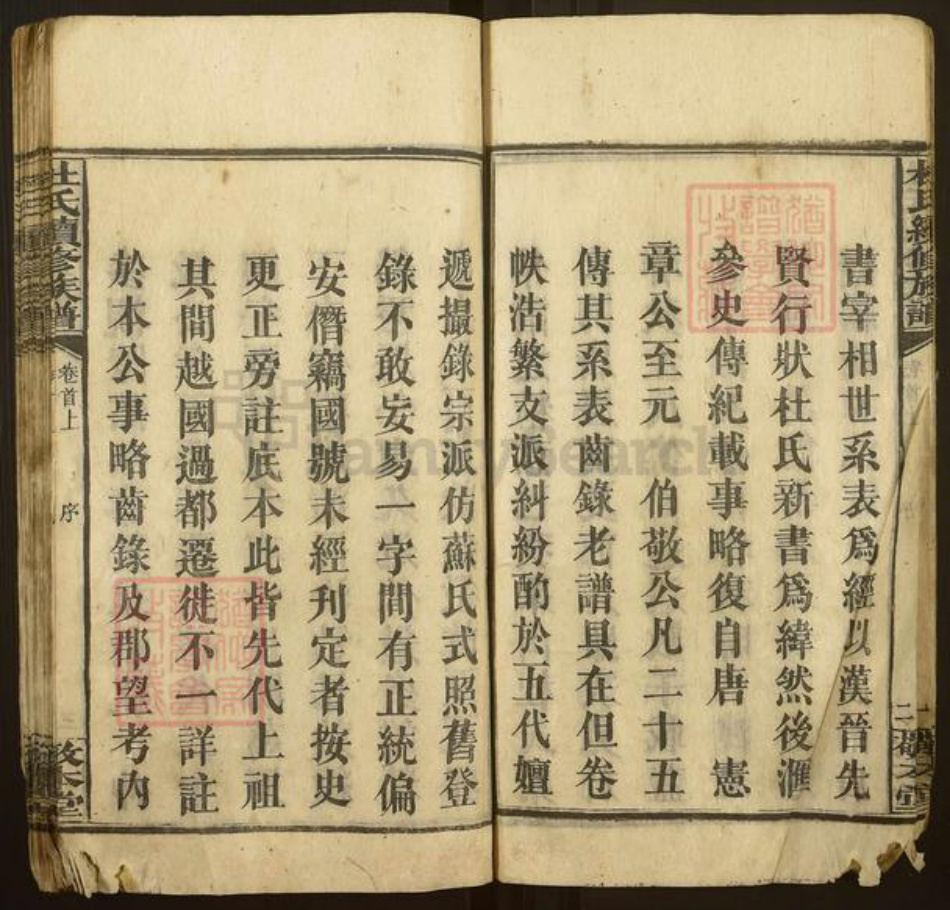 書宰相世系表爲經以漢晉先
賢行狀杜氏新書爲緯然後滙
參史傳紀載事略復自唐 憲
章公至元 伯敬公凡二十五
傳其系表齒錄老譜具在但卷
帙浩繁支派糾紛酌於五代嬗
遞撮錄宗派仿蘇氏式照舊登
錄不敢妄易一字間有正統偏
安僭竊國號未經刊定者按史
更正旁註底本此皆先代上祖
其間越國過都遷徙不一詳註
於本公事略齒錄及郡望考內
杜氏續修族譜
卷首上 序
杜氏續修族譜
二
FamilySearch